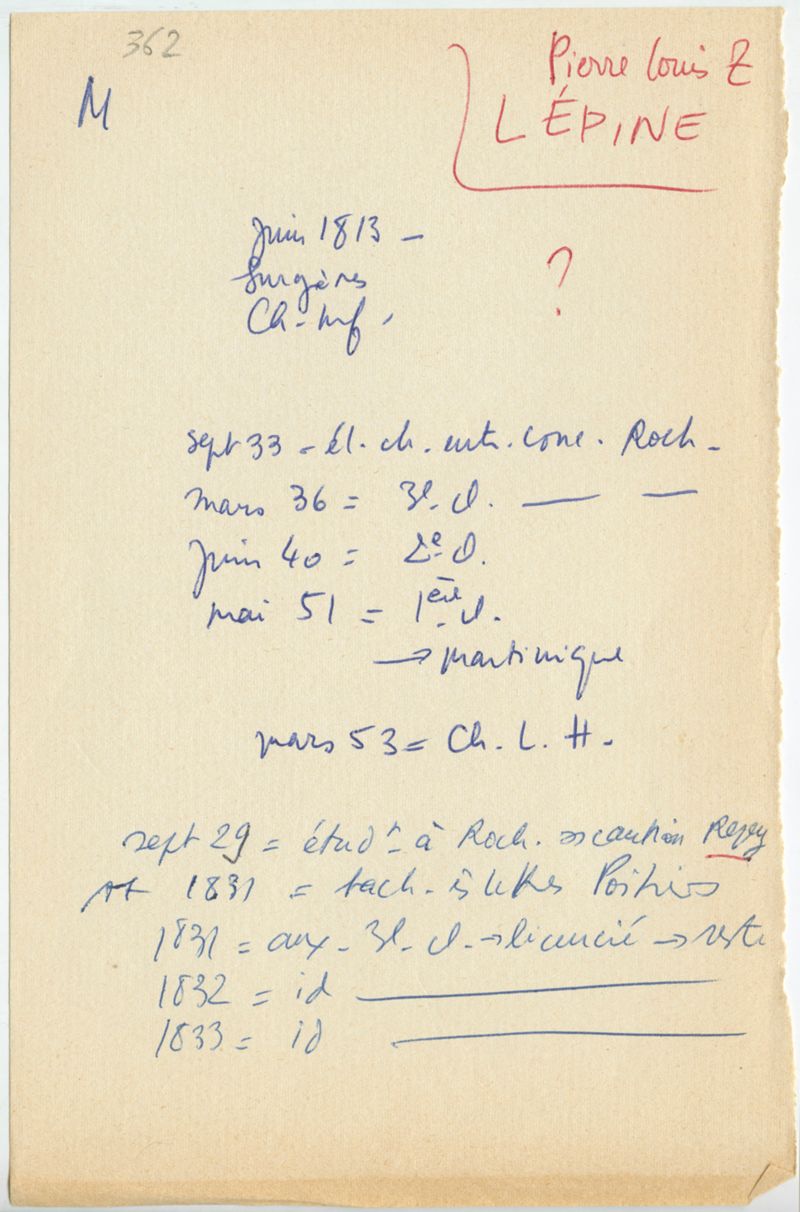 362
M
Pierre Louis Z
LÉPINE
Juin 1813 -
Surgères
Ch-Inf.
?
sept 33 = él. ch. entr. conc. Roch -
mars 36 = 3e cl. — —
Juin 40 = 2e cl.
mai 51 = 1ère cl.
→ Martinique
mars 53 = Ch. L. H.
sept 29 = étudt à Roch. caution Repey
1831 = bach. ès lettres Poitiers
1831 = aux. 3e cl. → licencié → reste
1832 = id —
1833 = id —